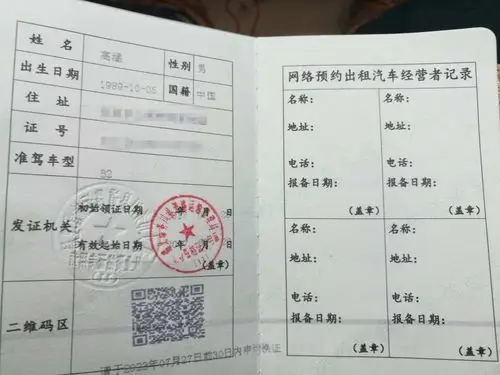 姓名
性别 男
出生日期 1989-10-05 国籍 中国
住址
证号
准驾车型
发证机关
初始领证日期 年 月 日
有效起始日期 年 月 日
(盖章)
二维码区
请于2023年07月27日前30日内申请换证
网络预约出租汽车经营者记录
名称: 名称:
地址: 地址:
电话: 电话:
报备日期: 报备日期:
(盖章) (盖章)
名称: 名称:
地址: 地址:
电话: 电话:
报备日期: 报备日期:
(盖章) (盖章)